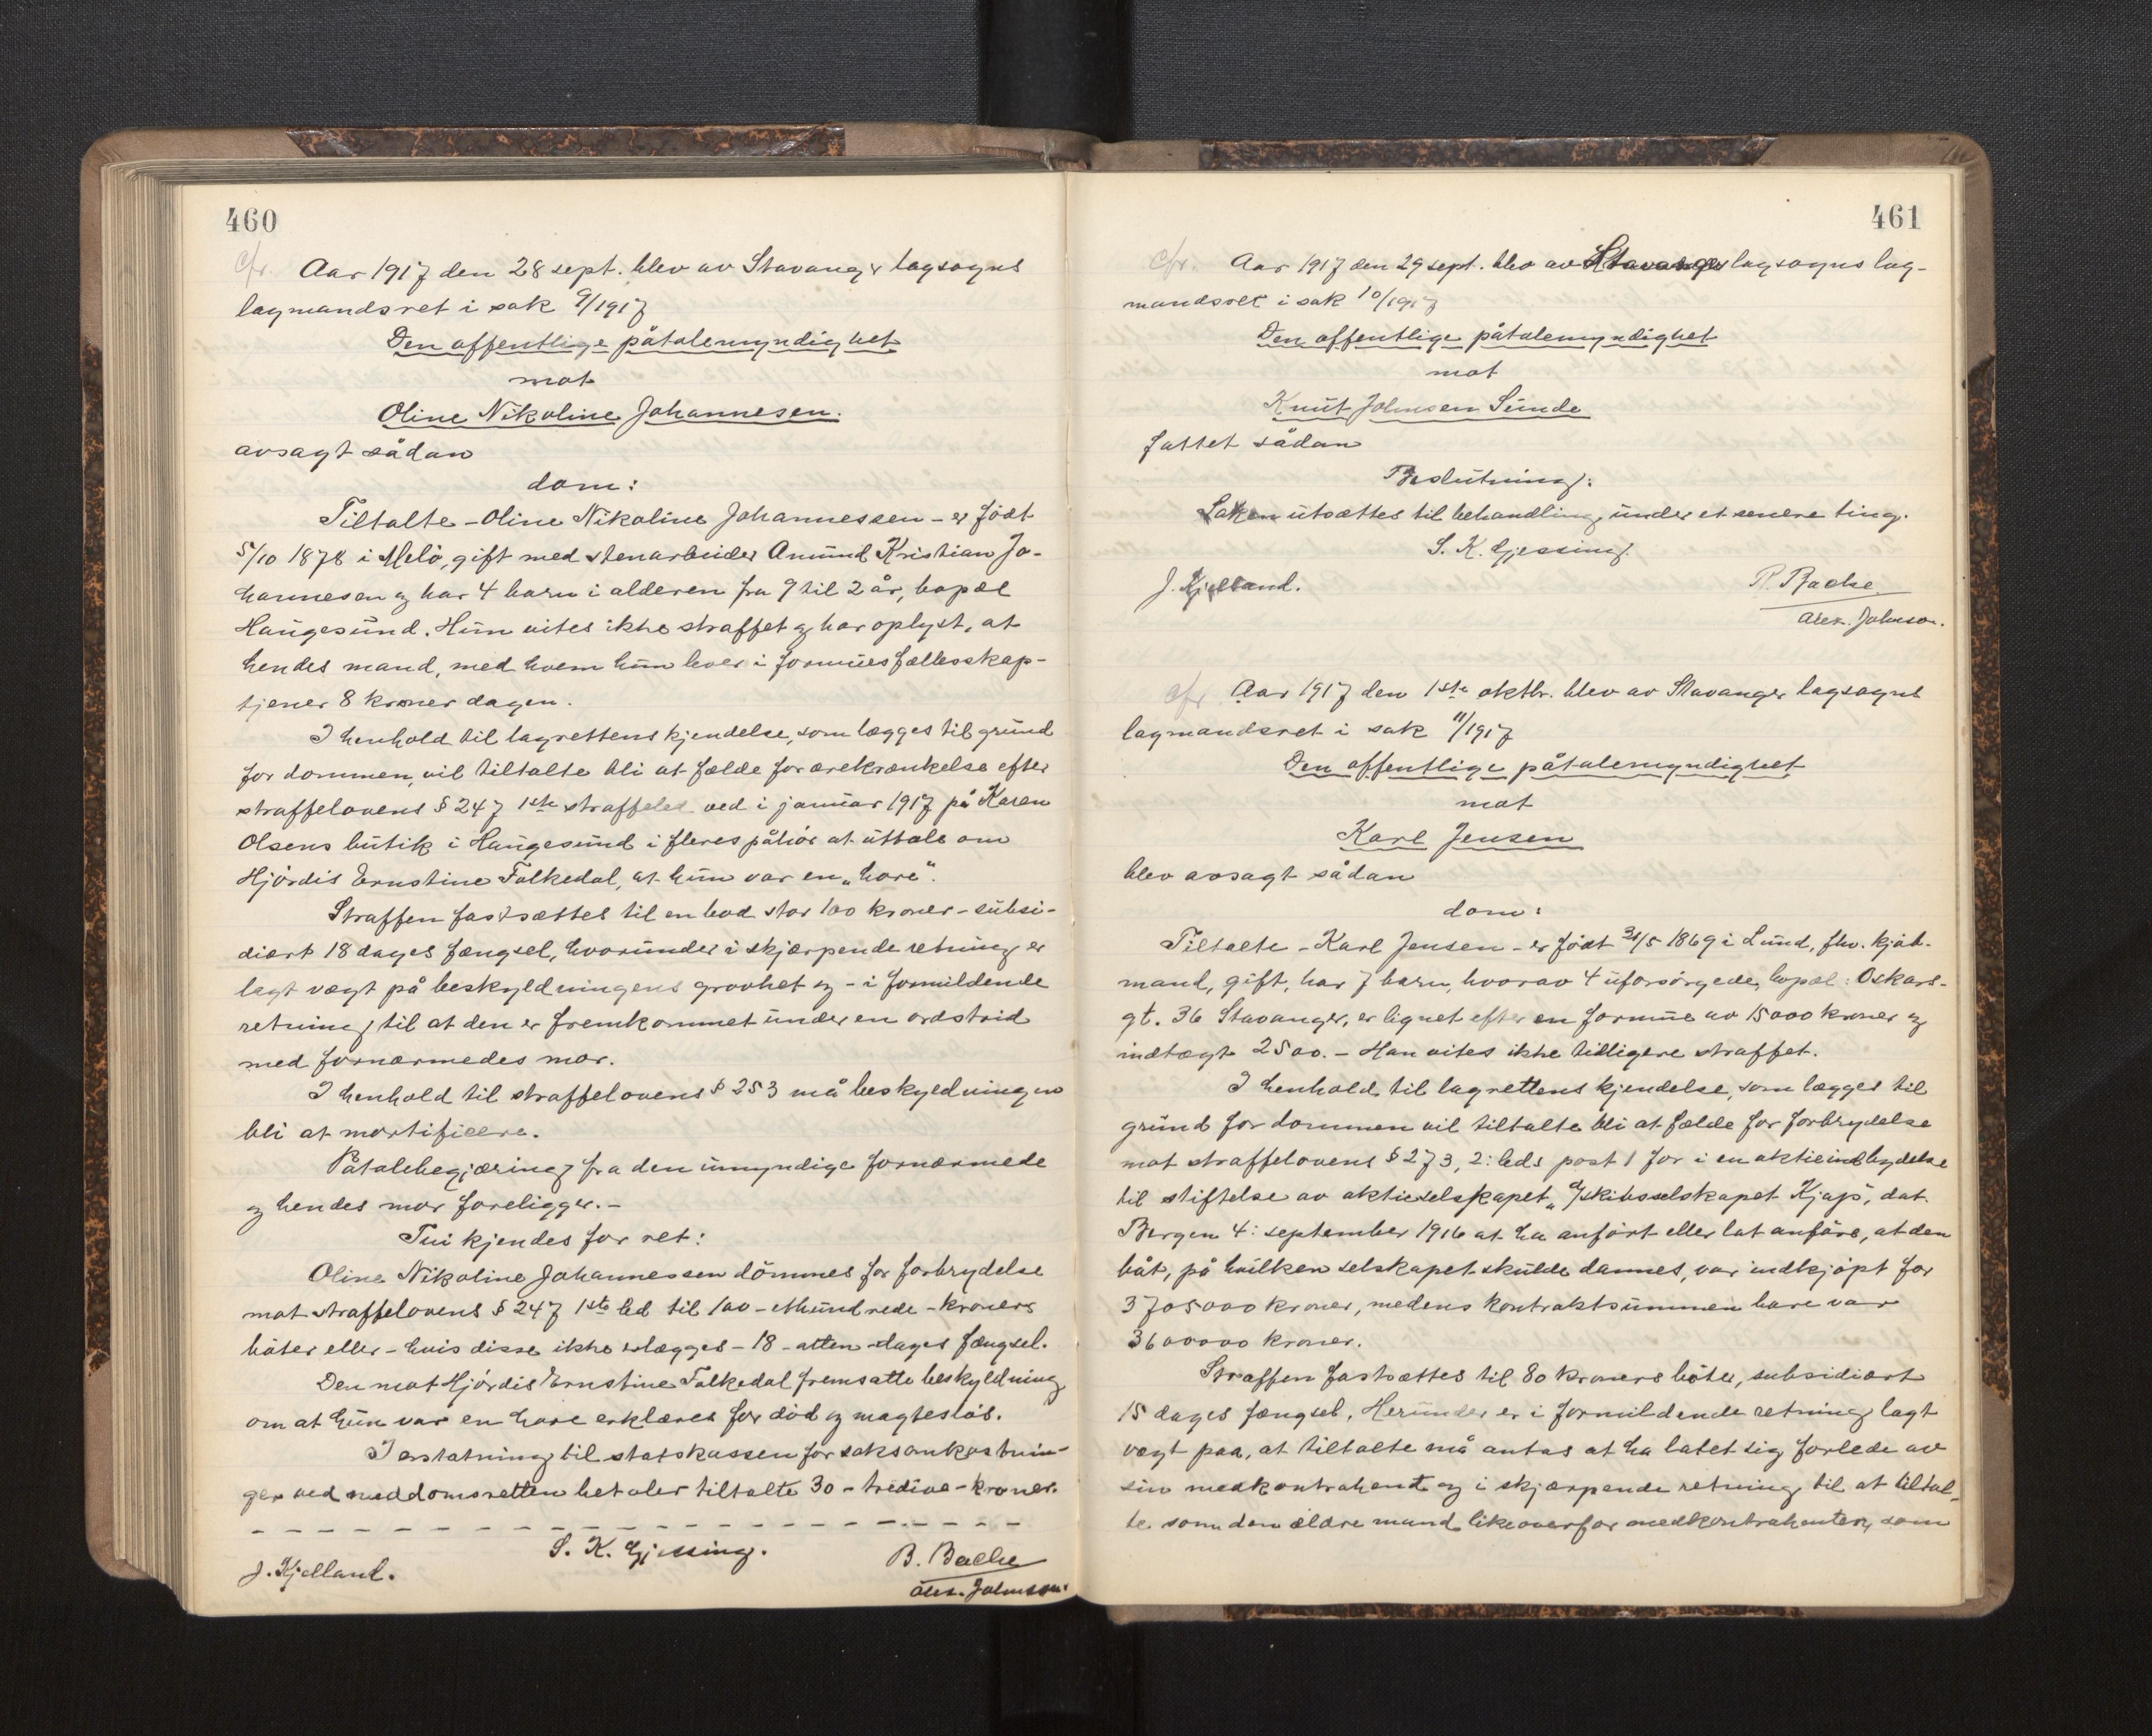 460
cfr. Aar 1917 den 28 sept. blev av Stavanger lagsogns
lagmandsret i sak 9/1917
Den offentlige påtalemyndighet
mot
Oline Nikoline Johannesen.
avsagt sådan
dom:
Tiltalte - Oline Nikoline Johannessen - er födt
5/10 1878 i Melö, gift med stenarbeider Amund Kristian Jo-
hannesen og har 4 barn i alderen fra 9 til 2 år, bopæl
Haugesund. Hun vites ikke straffet og har oplyst, at
hendes mand, med hvem hun lever i formuesfællesskap -
tjener 8 kroner dagen.
I henhold til lagrettens kjendelse, som lægges til grund
for dommen, vil tiltalte bli at fælde for ærekrænkelse efter
straffelovens § 247 1ste straffeled ved i januar 1917 på Karen
Olsens butik i Haugesund i fleres påhör at uttale om
Hjördis Ernstine Falkedal, at hun var en „hore“.
Straffen fastsættes til en bod stor 100 kroner - subsi-
diært 18 dages fængsel, hvorunder i skjærpende retning er
lagt vægt på beskyldningens grovhet og - i formildende
retning, til at den er fremkommet under en ordstrid
med fornærmedes mor.
I henhold til straffelovens § 253 må beskyldningen
bli at mortificere.
Påtalebegjæring fra den umyndige fornærmede
og hendes mor foreligger. -
Tni kjendes for ret:
Oline Nikoline Johannessen dömmes for forbrydelse
mot straffelovens § 247 1ste led til 100 - ethundrede - kroners
böter eller - hvis disse ikke erlægges - 18 - atten - dages fængsel.
Den mot Hjördis Ernstine Falkedal fremsatte beskyldning
om at hun var en hore erklæres for död og magteslös.
I erstatning til statskassen for saksomkostnin-
ger ved meddomsretten betaler tiltalte 30 - tredive - kroner.
S. K. Gjessing.
J. Kjelland.
B. Bache
Alex. Johnson.
461
cfr. Aar 1917 den 29 sept. blev av Stavanger lagsogns lag-
mandsret i sak 10/1917
Den offentlige påtalemyndighet
mot
Knut Johnsen Sunde
fattet sådan
Beslutning:
Saken utsættes til behandling under et senere ting.
S. K. Gjessing.
J. Kjelland.
B. Bache
Alex. Johnson.
cfr. Aar 1917 den 1ste oktbr. blev av Stavanger lagsogns
lagmandsret i sak 11/1917
Den offentlige påtalemyndighet
mot
Karl Jensen
blev avsagt sådan
dom:
Tiltalte - Karl Jensen - er födt /5 1869 i Lund, fhv. kjöb-
mand, gift, har 7 barn, hvorav 4 uforsörgede, bopæl: Oskars-
gt. 36 Stavanger, er lignet efter en formue av 15000 kroner og
indtægt 2500. - Han vites ikke tidligere straffet.
I henhold til lagrettens kjendelse, som lægges til
grund for dommen vil tiltalte bli at fælde for forbrydelse
mot straffelovens § 273, 2: leds post 1 for i en aktieindbydelse
til stiftelse av aktieselskapet „A/S skibsselskapet Kjap“, dat.
Bergen 4: september 1916 at ha anfört eller lat anföre, at den
båt, på hvilken selskapet skulde dannes, var indkjöpt for
3705000 kroner, medens kontraktsummen bare var
3600000 kroner.
Straffen fastsættes til 80 kroners böter, subsidiært
15 dages fængsel. Herunder er i formildende retning lagt
vægt paa, at tiltalte må antas at ha latet sig forlede av
sin medkontrahent og i skjærpende retning til at tiltal-
te som den ældre mand likeoverfor medkontrahenten, som